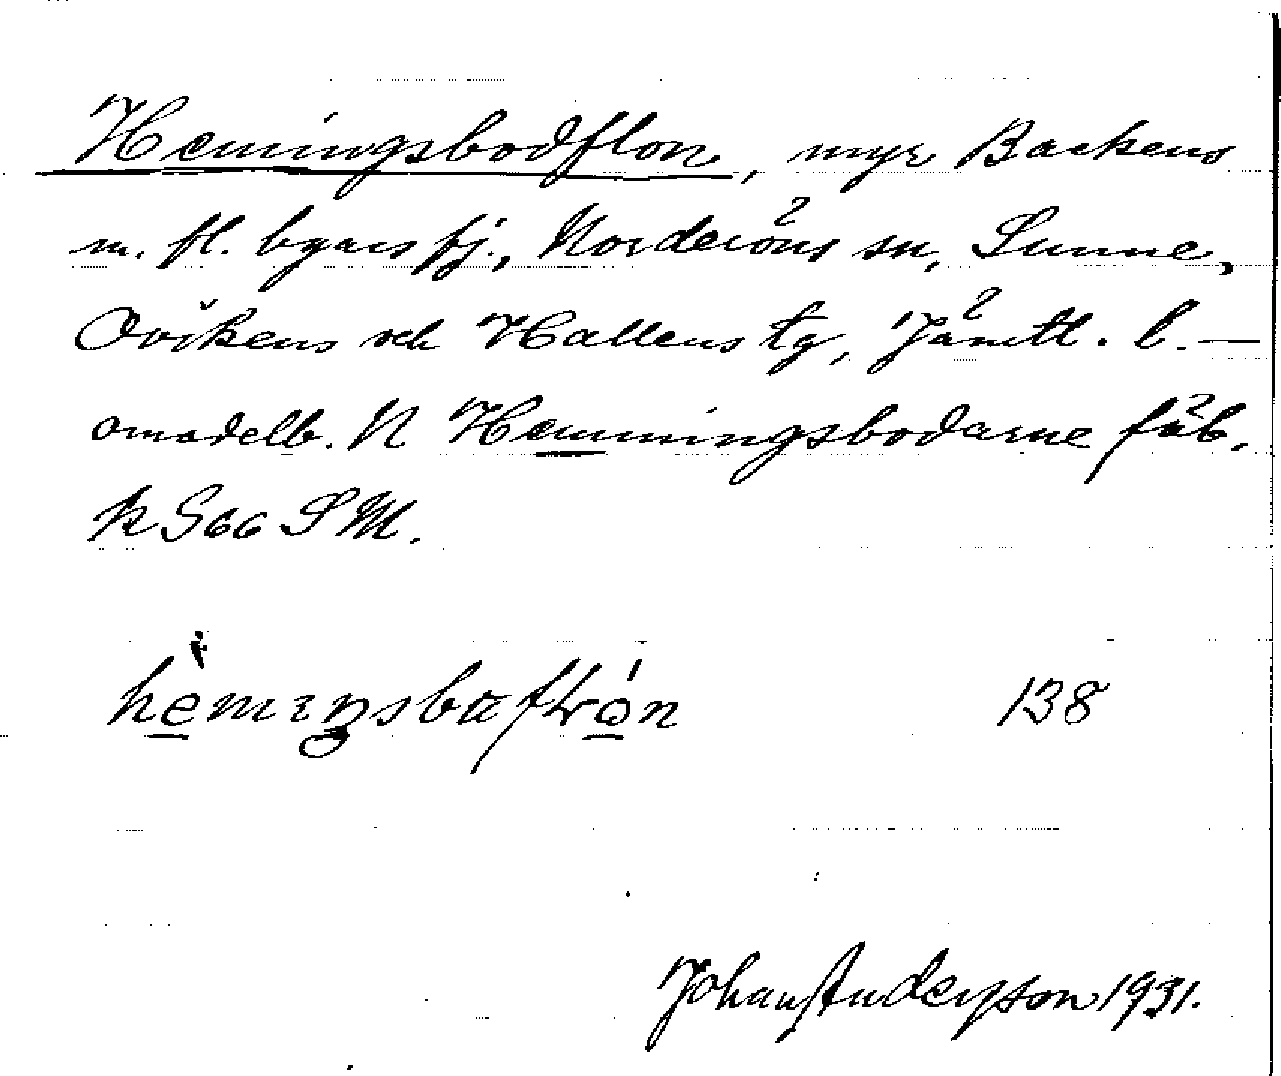 Hemingsbodflon, myr Backens
m. fl. byars fj., Norderöns sn, Sunne,
Ovikens och Hallens tg, Jämtl. l. —
omedelb. N Hemmingsbodarne fäb.
k S66 SM.
138
Johan Andersson 1931.